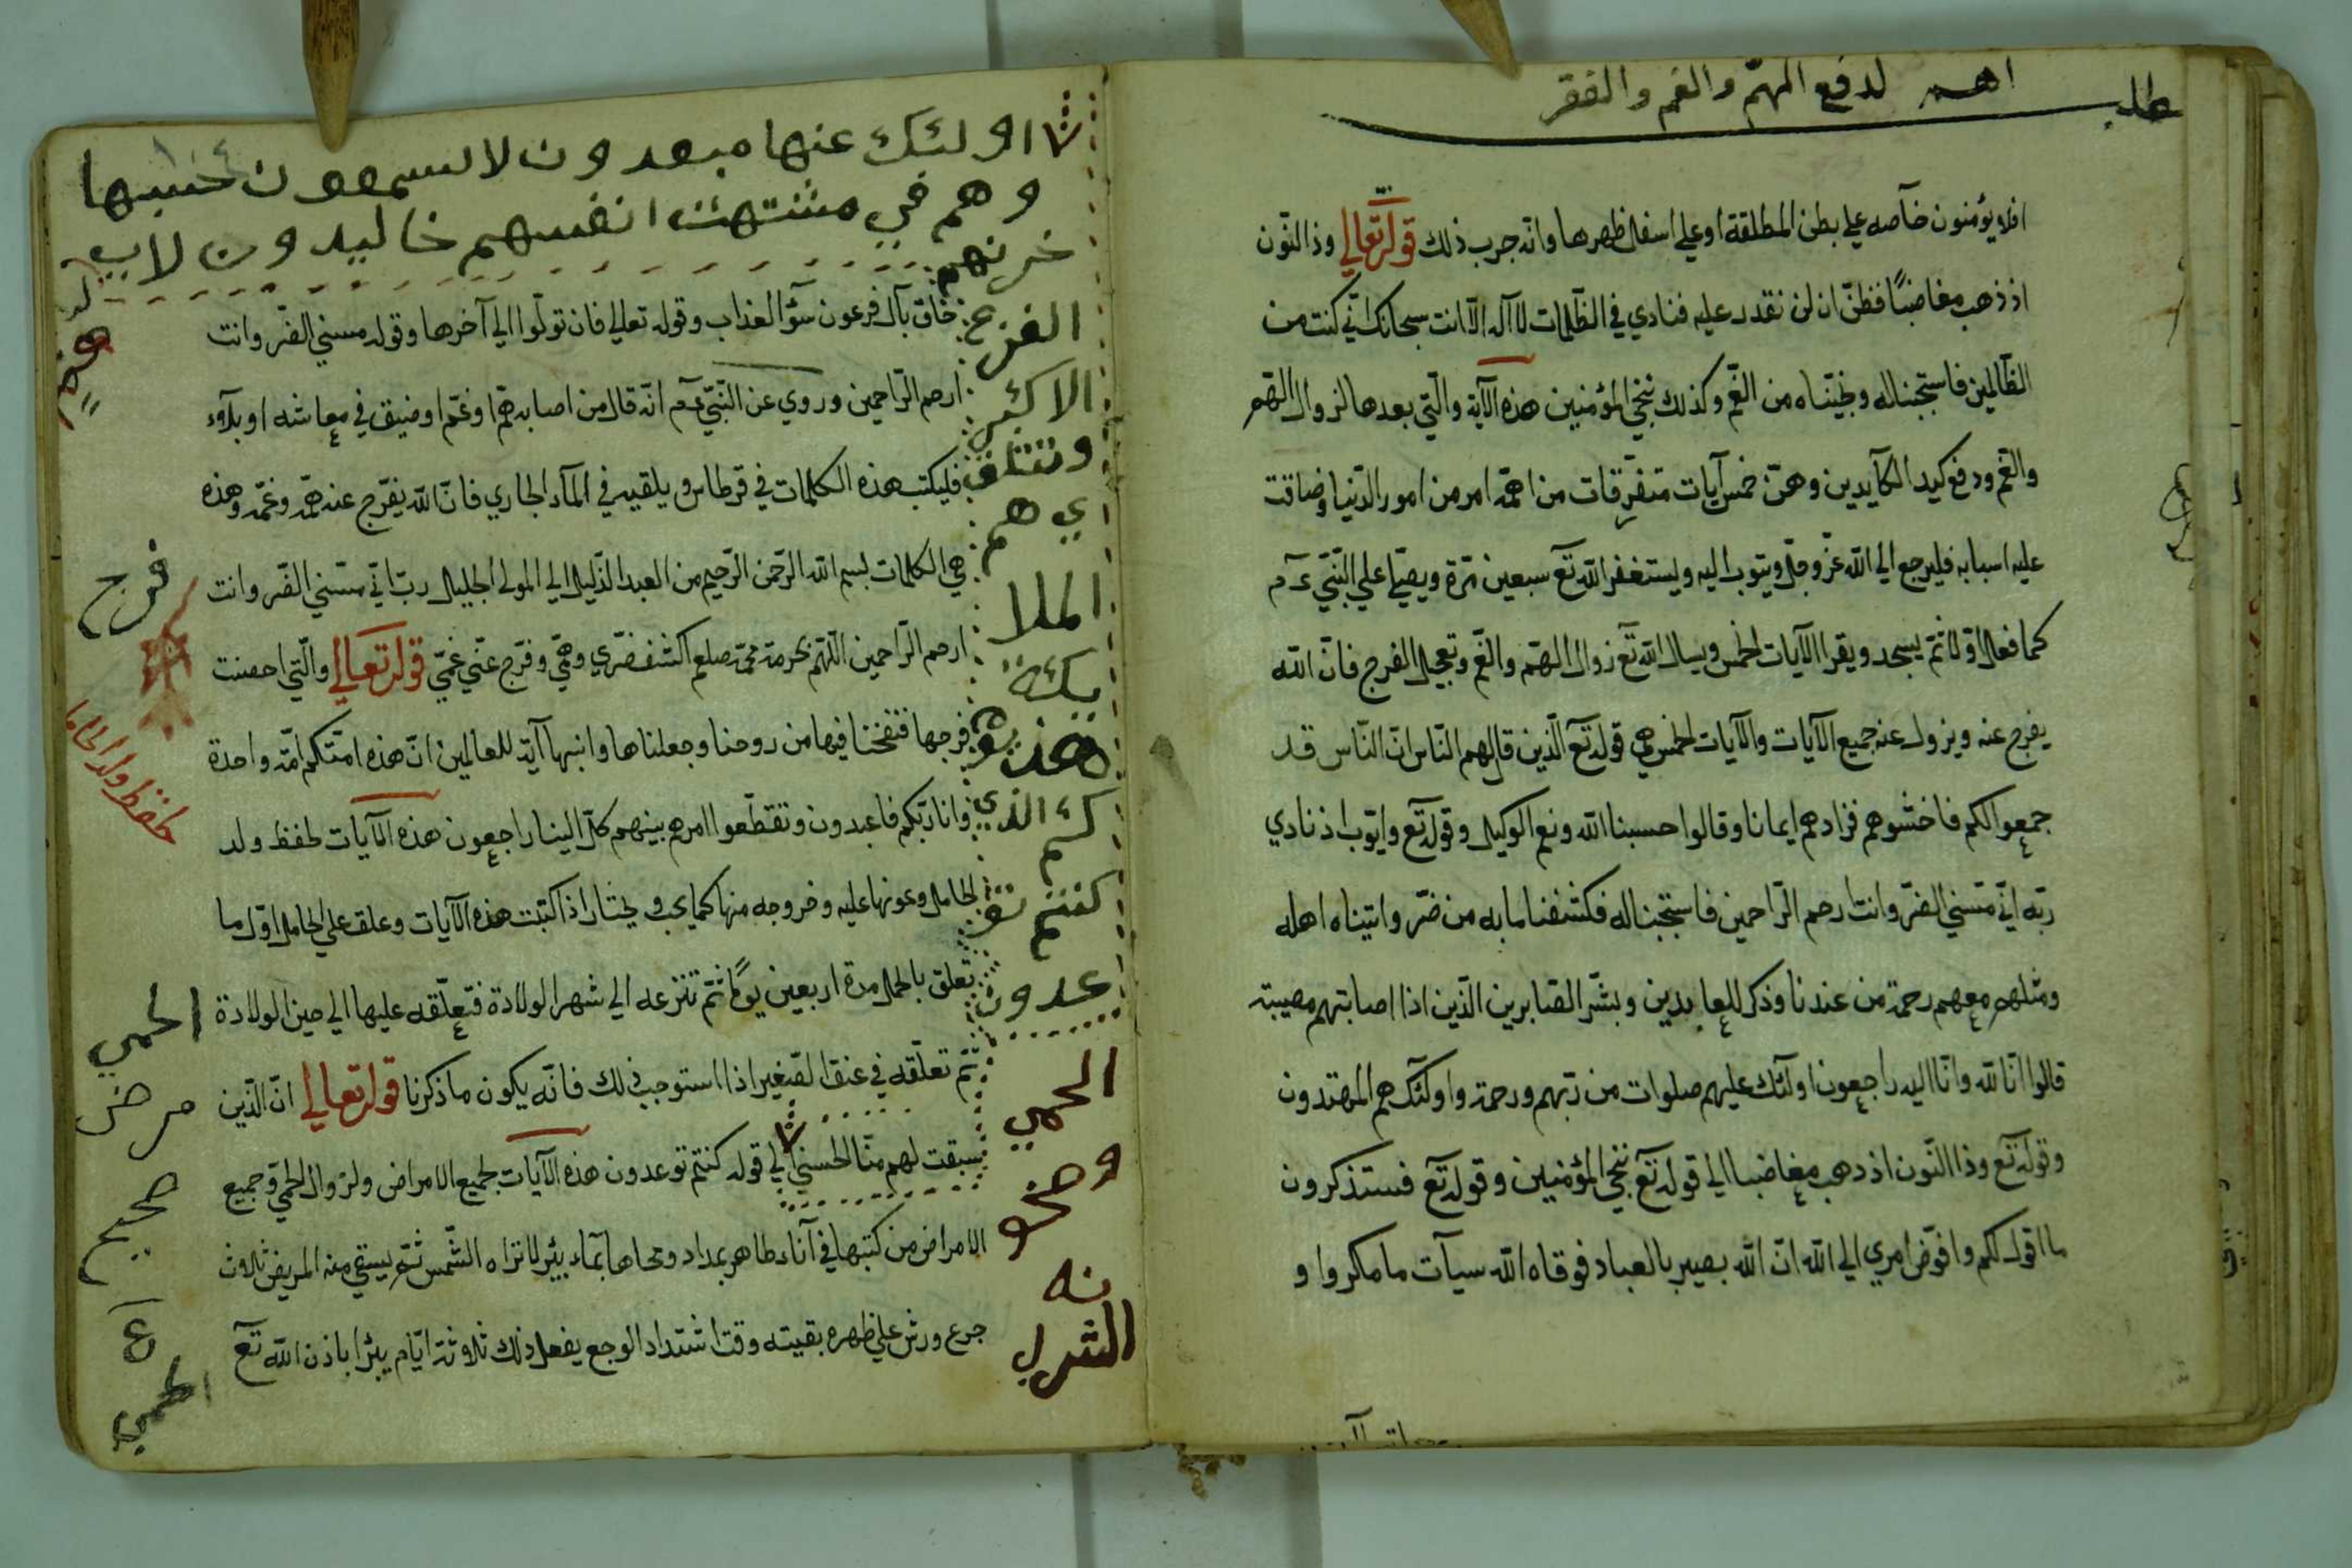 مطلب اهم لدفع الهمّ والغم والفقر
افلا يؤمنون خاصه على بطن المطلقة او على اسفل ظهرها وانه جرب ذلك قوله تعالي وذا النّون
اذ ذهب مغاضبًا فظنّ ان لن نقدر عليه فنادي في الظّلمات لا اله الّا انت سبحانك انّي كنت من
الظّالمين فاستجبنا له ونجّيناه من الغّم وكذلك ننجي المؤمنين هذه الآية والّتي بعدها لزوال الهّم
والغم ودفع كيد الكآيدين وهنّ خمس آيات متفرّقات من اهمّه امر من امور الدّنيا وضاقت
عليه اسبابه فليرجع الي الله عزّ وجلّ ويتوب اليه وليستغفر الله تع سبعين مرّة ويصلّي علي النّبيّ ع م
كما فعل اوّلا ثمّ يسجد ويقرا الآيات الخمس ويسال الله تع زوال الهّم والغّم وتعجيل الفرج فانّ الله
يفرج عنه ويزول عنه جميع الآيات والآيات الخمس هي قوله تع الّذين قال لهم النّاس انّ النّاس قد
جمعوا لكم فاخشوهم فزادهم ايمانا وقالوا حسبنا الله ونعم الوكيل وقوله تع وايّوب اذ نادي
ربّه انّي مسّني الضّر وانت ارحم الرّاحمين فاستجبنا له فكشفنا ما به من ضرّ واتيناه اهله
ومثلهم معهم رحمة من عندنا وذكر للعابدين وبشّر الصّابرين الّذين اذا اصابتهم مصيبة
قالوا انّا لله وانّا اليه راجعون اولئك عليهم صلوات من ربّهم ورحمة واولئك هم المهتدون
وقوله تع وذا النّون اذ ذهب مغاضبا الي قوله تع ننجي المؤمنين وقوله تع فستذكرون
ما اقول لكم وافوّض امري الي الله انّ الله بصير بالعباد فوقاه الله سيآت ما مكروا و
اولئك عنها مبعدون لا يسمعون حسيسها
وهم في مشتهت انفسهم خاليدون لا يـ
حزنهم
الفزع
الاكبر
وتتلقى
هم
الملا
يكة
هذ يو
كم الذي
كنتم تو
عدون
الحمي
حاق بآل فرعون سؤ العذاب وقوله تعالي فان تولّوا الي آخرها وقوله مسني الضّر وانت
ارحم الرّاحمين وروي عن النّبيّ ع م انّه قال من اصابه همّ او غمّ او ضيق في معاشه او بلآء
فليكتب هذه الكلمات في قرطاس ويلقيه في المآء الجاري فانّ الله يفرّج عنه همّه وغمّه وهذه
هي الكلمات بسم الله الرّحمن الرّحيم من العبد الذّليل الي المولي الجليل ربّ انّي مسّني الضّر وانت
ارحم الرّاحمين اللّهمّ بحرمة محمّد صلعم اكشف ضرّي وهمّي وفرّج عنّي غمّي قوله تعالي والّتي احصنت
فرجها فنفخنا فيها من روحنا وجعلناها وابنها آية للعالمين انّ هذه امّتكم امّة واحدة
وانا ربّكم فاعبدون وتقطّعوا امرهم بينهم كلّ الينا راجعون هذه الآيات لحفظ ولد
الحامل وعونها عليه وخروجه منها كما يحب ويختار اذا كتبت هذه الآيات وعلق علي الحامل اوّل ما
تعلق بالحمل مدة اربعين يومًا ثمّ تنزعه الي شهر الولادة فتعلّقه عليها الي حين الولادة
ثمّ تعلّقه في عنق الصّغير اذا استوجب ذلك فانّه يكون ما ذكرنا قوله تعالي انّ الّذين
سبقت لهم منّا الحسني الي قوله كنتم توعدون هذه الآيات لجميع الامراض ولزوال الحمي وجميع
الامراض من كتبها في آناء طاهر بمداد ومحاها بمآء بئر لا تراه الشّمس ثمّ يسقي منه المريض ثلاث
جرع ورش علي ظهره بقيته وقت اشتداد الوجع يفعل ذلك ثلاثة ايّام يبرا باذن الله تع
فرج
حفظ ولد الحامل
الحمي
مرض
صحيح
الحمي